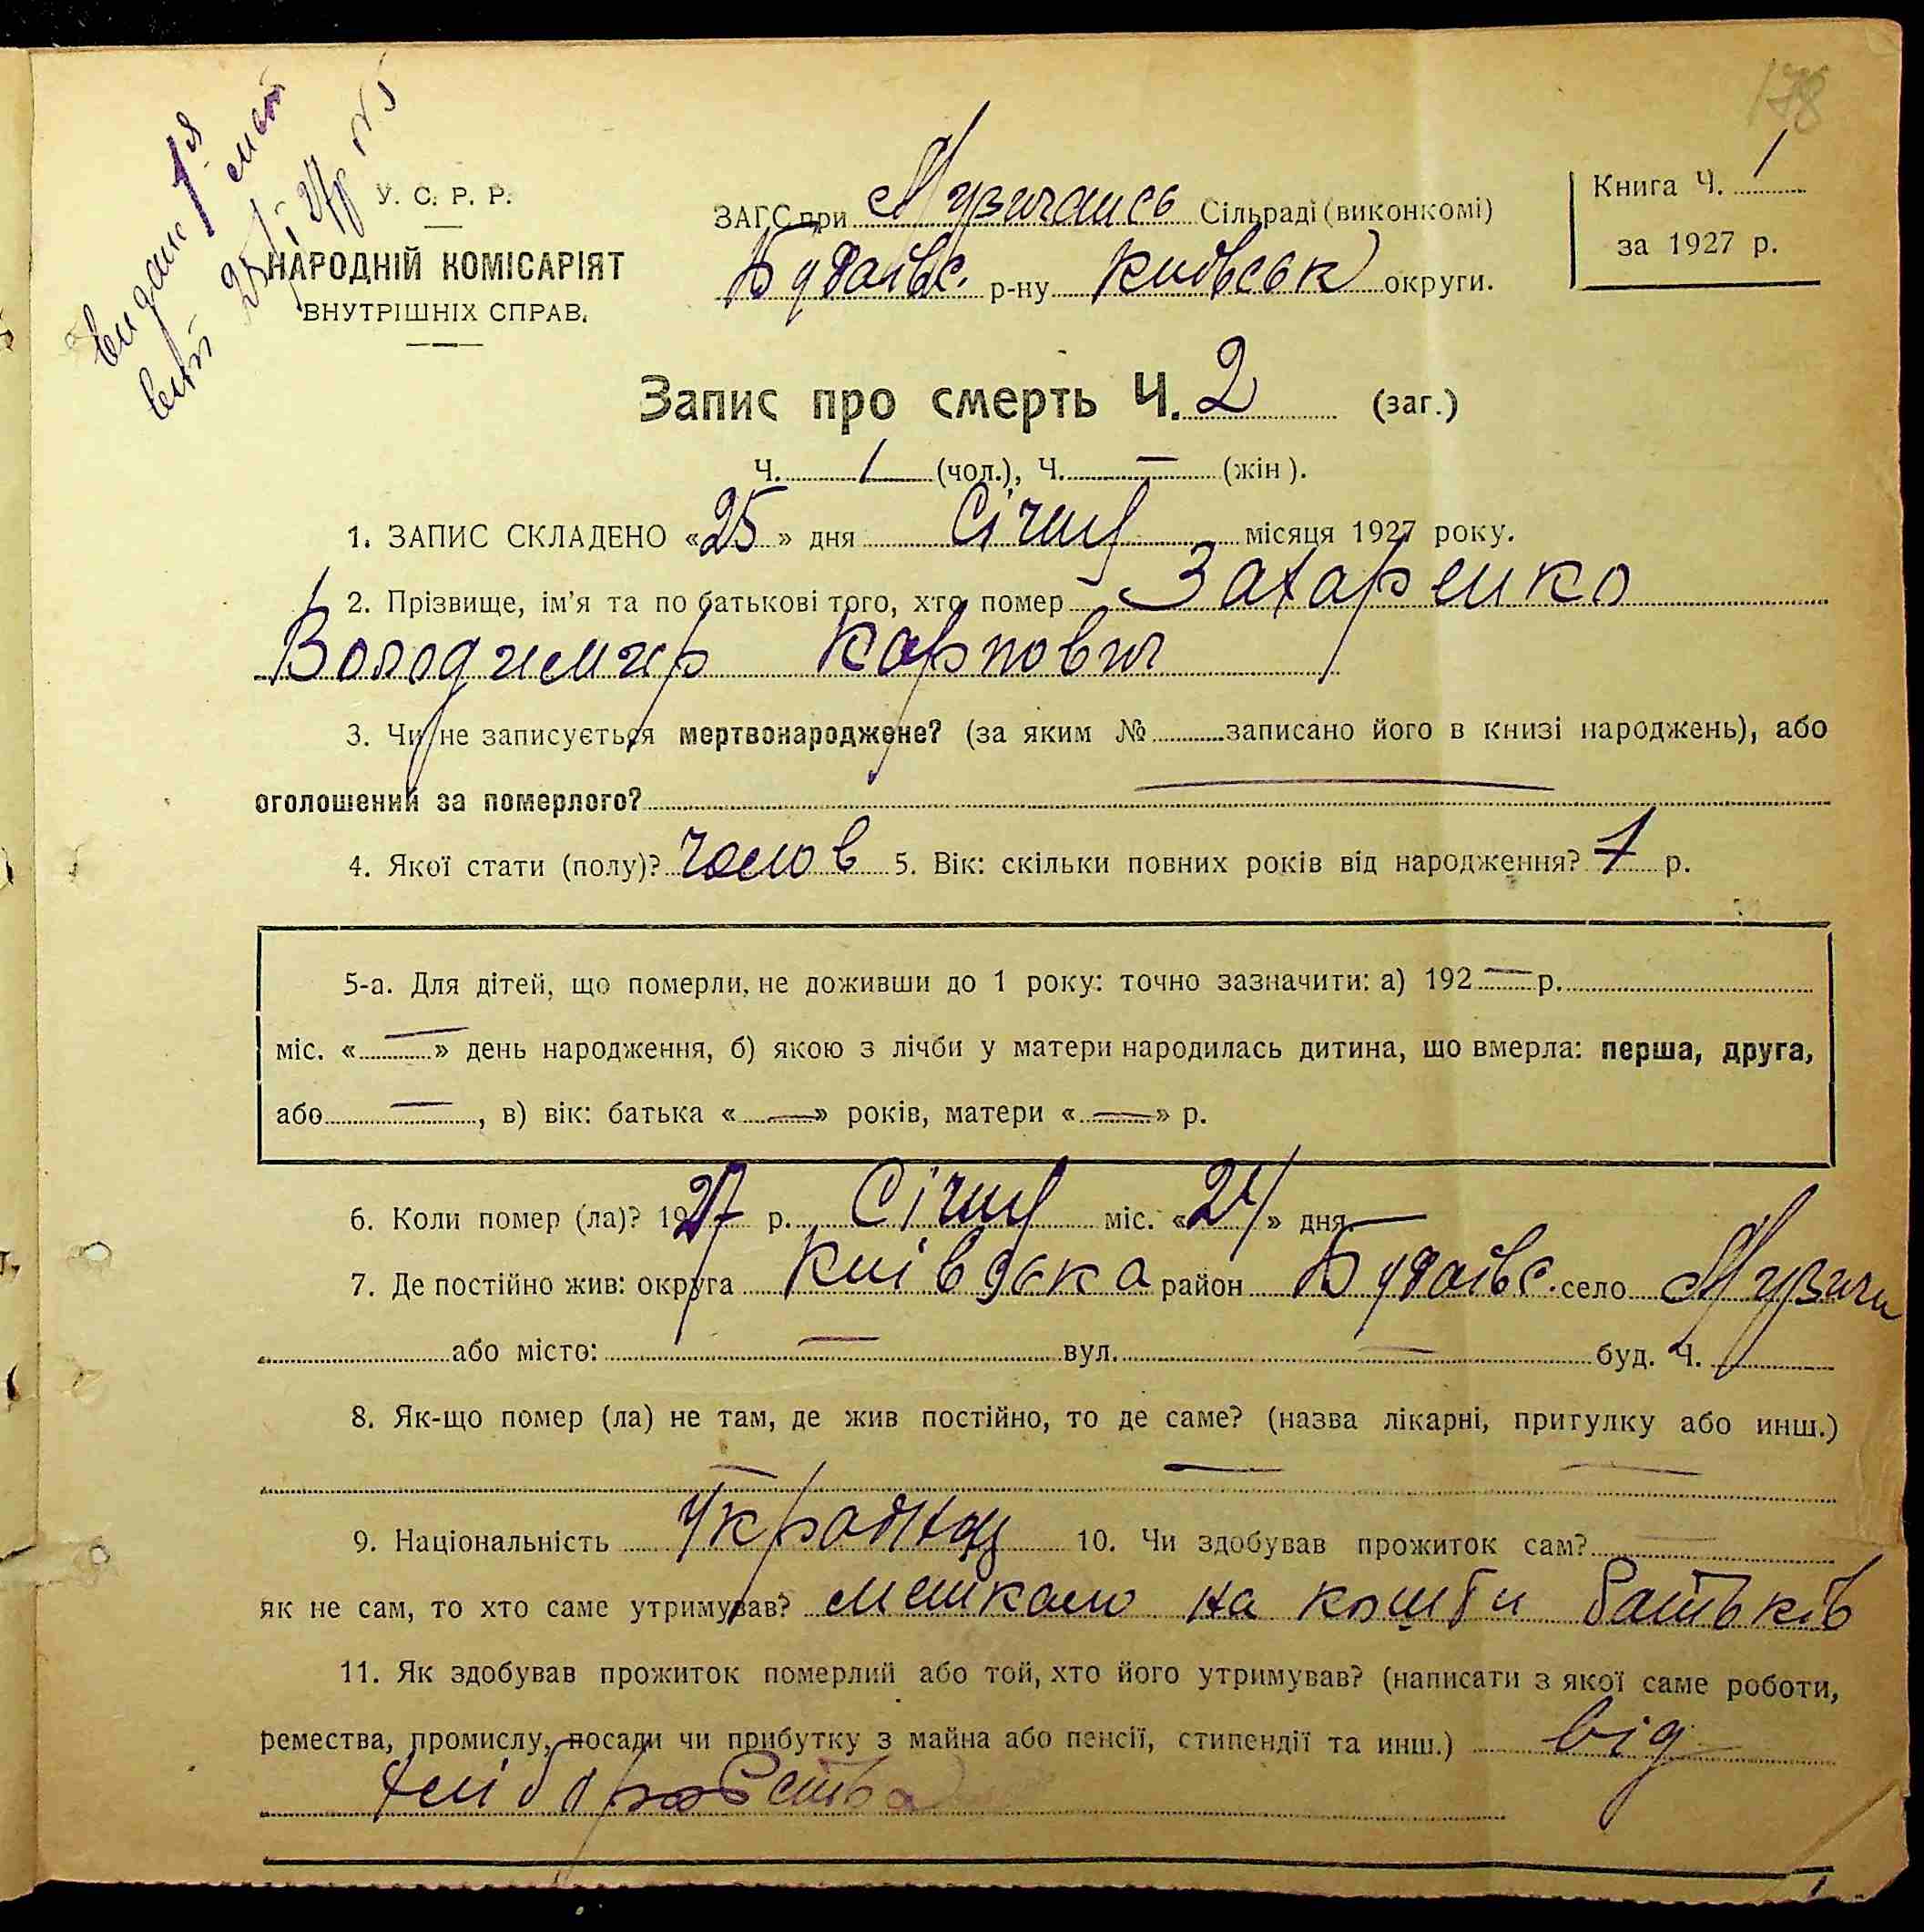 178
Видане 1ая
вип
25/I 27р №5
У. С. Р. Р.
НАРОДНІЙ КОМІСАРІЯТ
ВНУТРІШНІХ СПРАВ.
ЗАГС при Музичансь Сільраді (виконкомі)
Будаївс. р-ну Київськ округи.
Книга Ч. 1
за 1927 р.
Запис про смерть Ч. 2 (заг.)
Ч. 1 (чол.), Ч. — (жін).
1. ЗАПИС СКЛАДЕНО «25» дня Січня місяця 1927 року.
2. Прізвище, ім'я та по батькові того, хто помер Захаренко
Володимир Карпович
3. Чи не записується мертвонароджене? (за яким № записано його в книзі народжень), або
оголошений за померлого? —
4. Якої стати (полу)? чолов 5. Вік: скільки повних років від народження? 7 р.
5-а. Для дітей, що померли, не доживши до 1 року: точно зазначити: а) 192 — р.
міс. « — » день народження, б) якою з лічби у матери народилась дитина, що вмерла: перша, друга,
або — , в) вік: батька « — » років, матери « — » р.
6. Коли помер (ла)? 1927 р. Січня міс. «24» дня —
7. Де постійно жив: округа Київська район Будаївс. село Музичи
або місто: — вул. — буд. Ч.
8. Як-що помер (ла) не там, де жив постійно, то де саме? (назва лікарні, пригулку або инш.)
— — —
9. Національність Українец 10. Чи здобував прожиток сам? —
як не сам, то хто саме утримував? мешкало на кошти батьків
11. Як здобував прожиток померлий або той, хто його утримував? (написати з якої саме роботи,
ремества, промислу, посади чи прибутку з майна або пенсії, стипендії та инш.) від
хліборобства